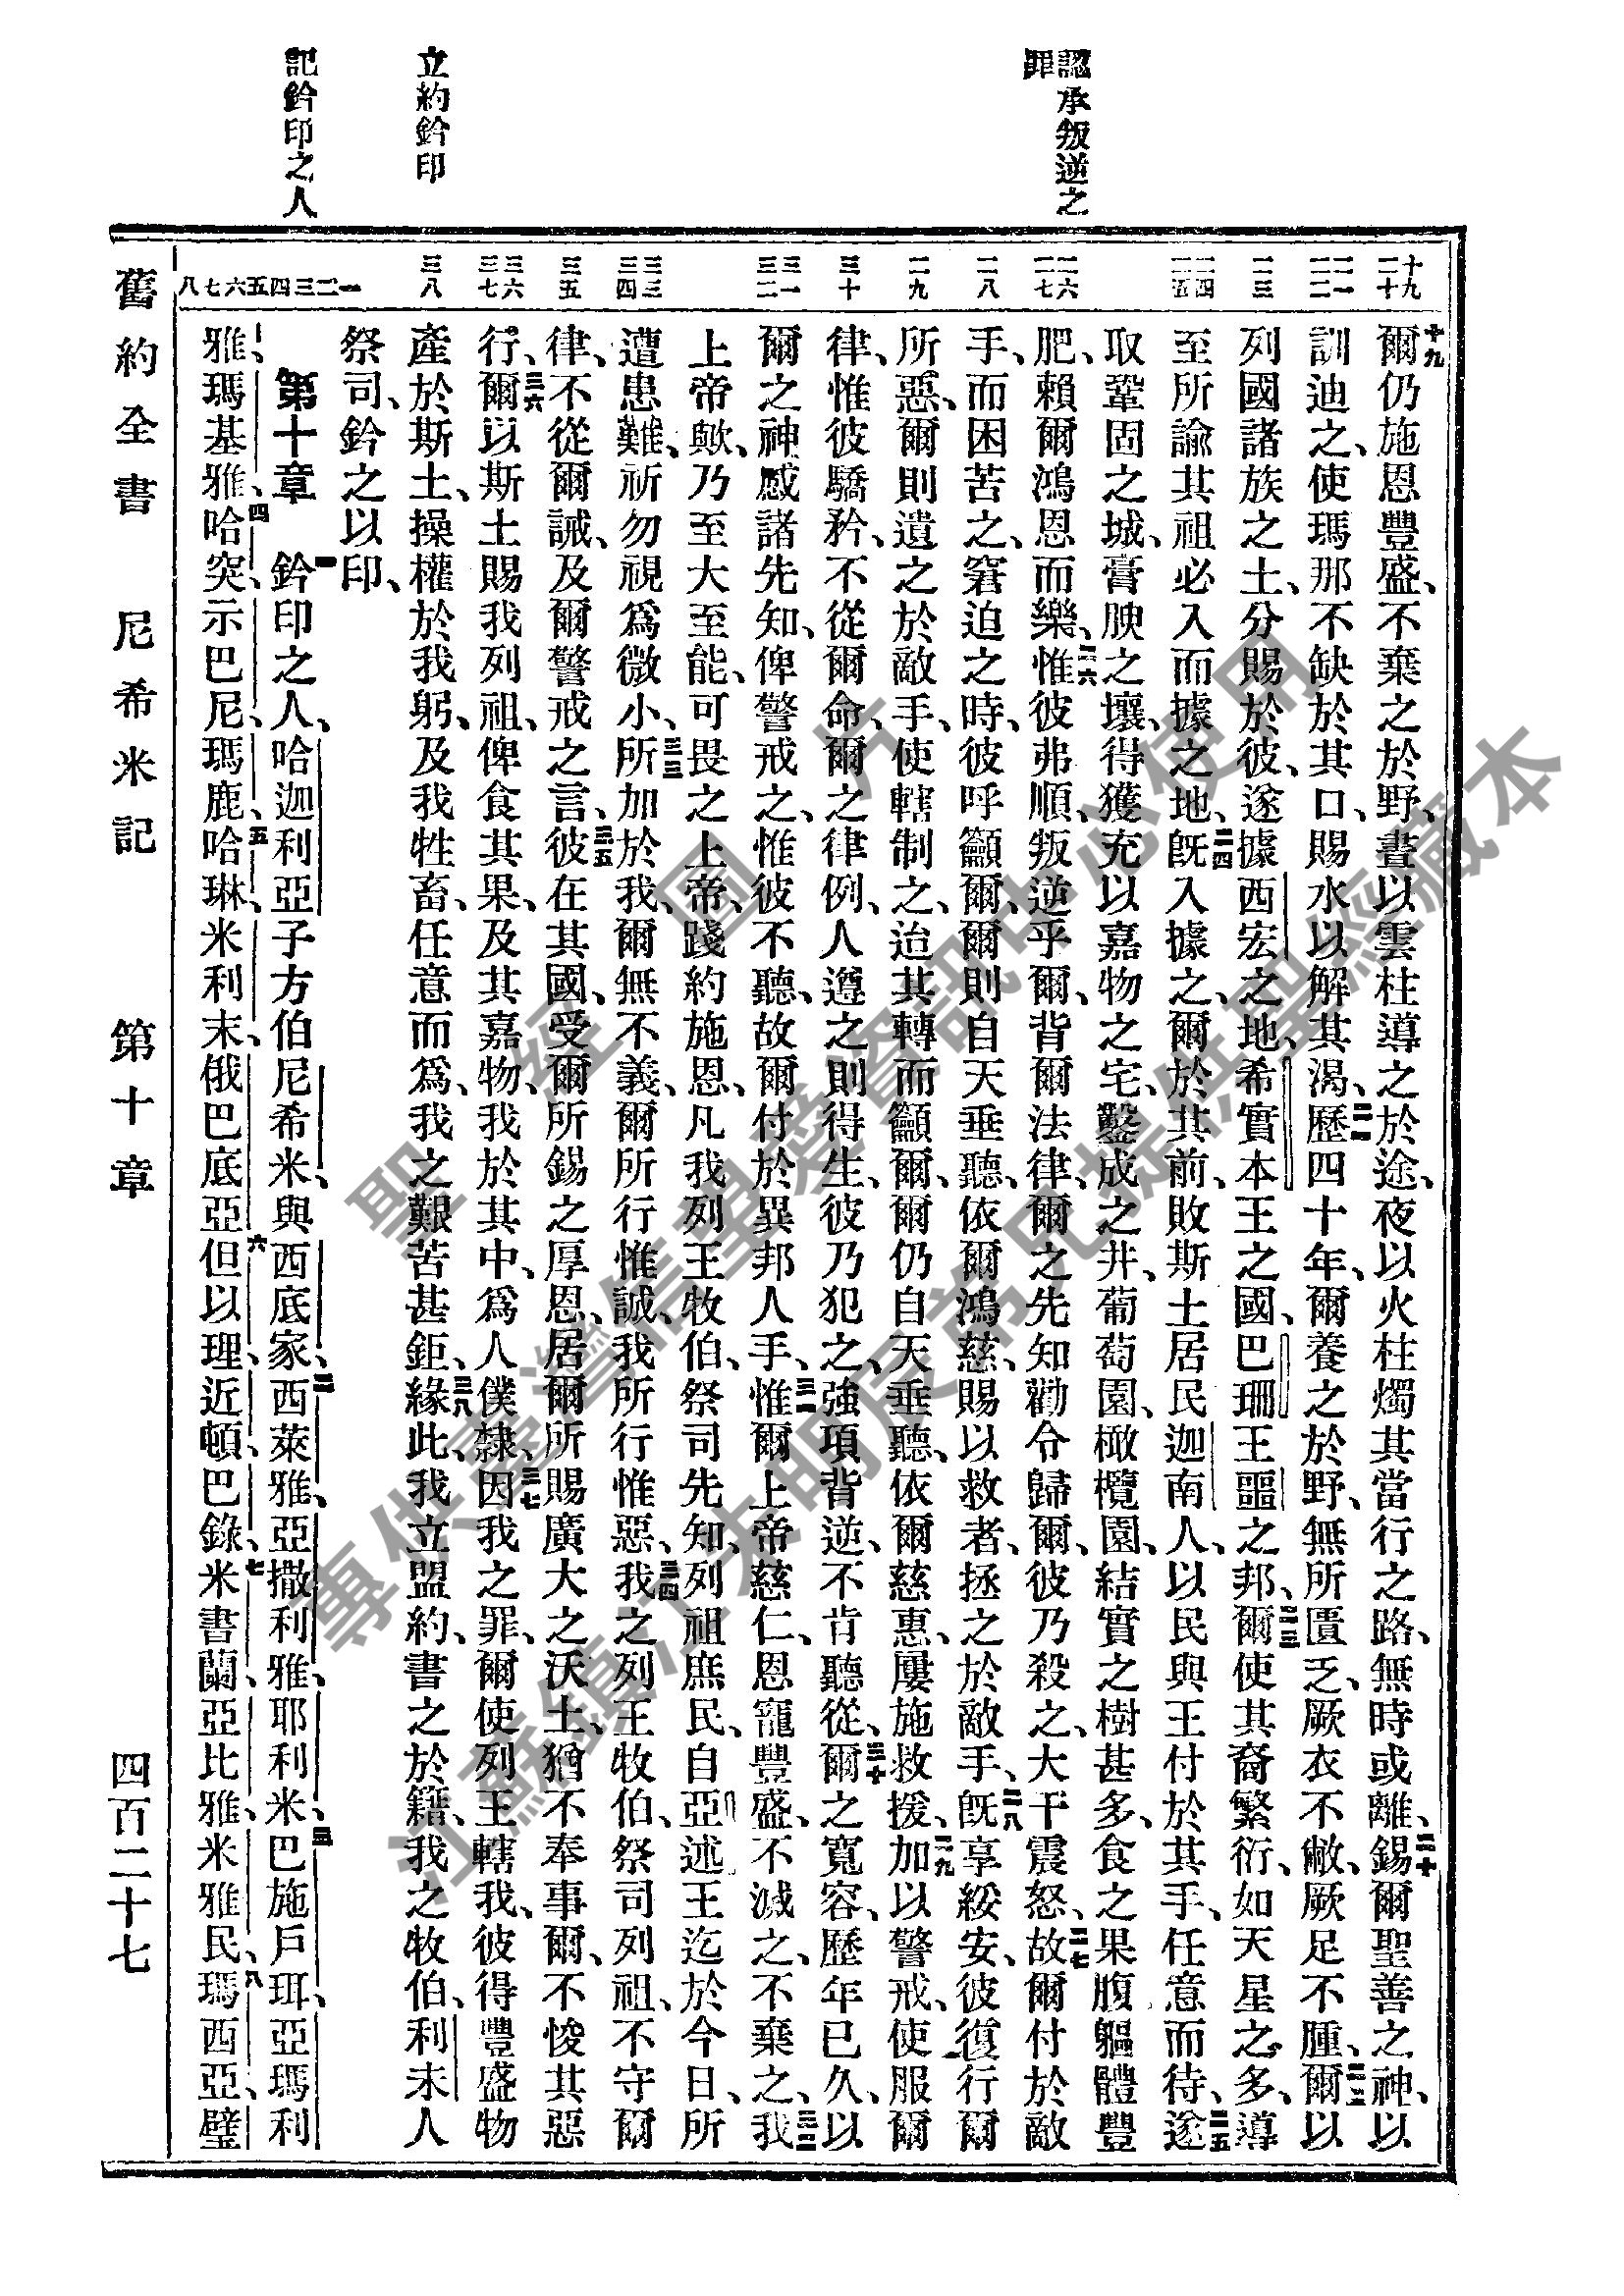 認承叛逆之
罪
立約鈐印
記鈐印之人
十九 二十
二一 二二
二三
二四 二五
二六 二七
二八
二九
三十
三一 三二
三三 三四
三五
三六 三七
三八
一 二 三 四 五 六 七 八
十九爾仍施恩豐盛、不棄之於野、晝以雲柱導之於途、夜以火柱燭其當行之路、無時或離、二十錫爾聖善之神、以
訓迪之、使瑪那不缺於其口、賜水以解其渴、二一歷四十年、爾養之於野、無所匱乏、厥衣不敝、厥足不腫、二二爾以
列國諸族之土、分賜於彼、遂據西宏之地、希實本王之國、巴珊王噩之邦、二三爾使其裔繁衍、如天星之多、導
至所諭其祖必入而據之地、二四旣入據之、爾於其前、敗斯土居民迦南人、以民與王付於其手、任意而待、二五遂
取鞏固之城、膏腴之壤、得獲充以嘉物之宅、鑿成之井、葡萄園、橄欖園、結實之樹甚多、食之果腹、軀體豐
肥、賴爾鴻恩而樂、二六惟彼弗順、叛逆乎爾、背爾法律、爾之先知勸令歸爾、彼乃殺之、大干震怒、二七故爾付於敵
手、而困苦之、窘迫之時、彼呼籲爾、爾則自天垂聽、依爾鴻慈、賜以救者、拯之於敵手、二八旣享綏安、彼復行爾
所惡、爾則遺之於敵手、使轄制之、迨其轉而籲爾、爾仍自天垂聽、依爾慈惠、屢施救援、二九加以警戒、使服爾
律、惟彼驕矜、不從爾命、爾之律例、人遵之則得生、彼乃犯之、強項背逆、不肯聽從、三十爾之寬容、歷年已久、以
爾之神感諸先知、俾警戒之、惟彼不聽、故爾付於異邦人手、三一惟爾上帝慈仁、恩寵豐盛、不滅之、不棄之、三二我
上帝歟、乃至大至能、可畏之上帝、踐約施恩、凡我列王牧伯、祭司先知、列祖庶民、自亞述王迄於今日、所
遭患難、祈勿視爲微小、三三所加於我、爾無不義、爾所行惟誠、我所行惟惡、三四我之列王牧伯、祭司列祖、不守爾
律、不從爾誡、及爾警戒之言、三五彼在其國、受爾所錫之厚恩、居爾所賜廣大之沃土、猶不奉事爾、不悛其惡
行、三六爾以斯土賜我列祖、俾食其果、及其嘉物、我於其中、爲人僕隸、三七因我之罪、爾使列王轄我、彼得豐盛物
產於斯土、操權於我躬、及我牲畜、任意而爲、我之艱苦甚鉅、三八緣此、我立盟約、書之於籍、我之牧伯、利未人
祭司、鈐之以印、
第十章 一鈐印之人、哈迦利亞子方伯尼希米、與西底家、二西萊雅、亞撒利雅、耶利米、三巴施戶珥、亞瑪利
雅、瑪基雅、四哈突、示巴尼、瑪鹿、五哈琳、米利末、俄巴底亞、六但以理、近頓、巴錄、七米書蘭、亞比雅、米雅民、八瑪西亞、璧
舊約全書 尼希米記 第十章 四百二十七
聖經圖片
專供臺灣信望愛資訊中心使用
江蘇鎮江朱明辰弟兄提供聖經藏本